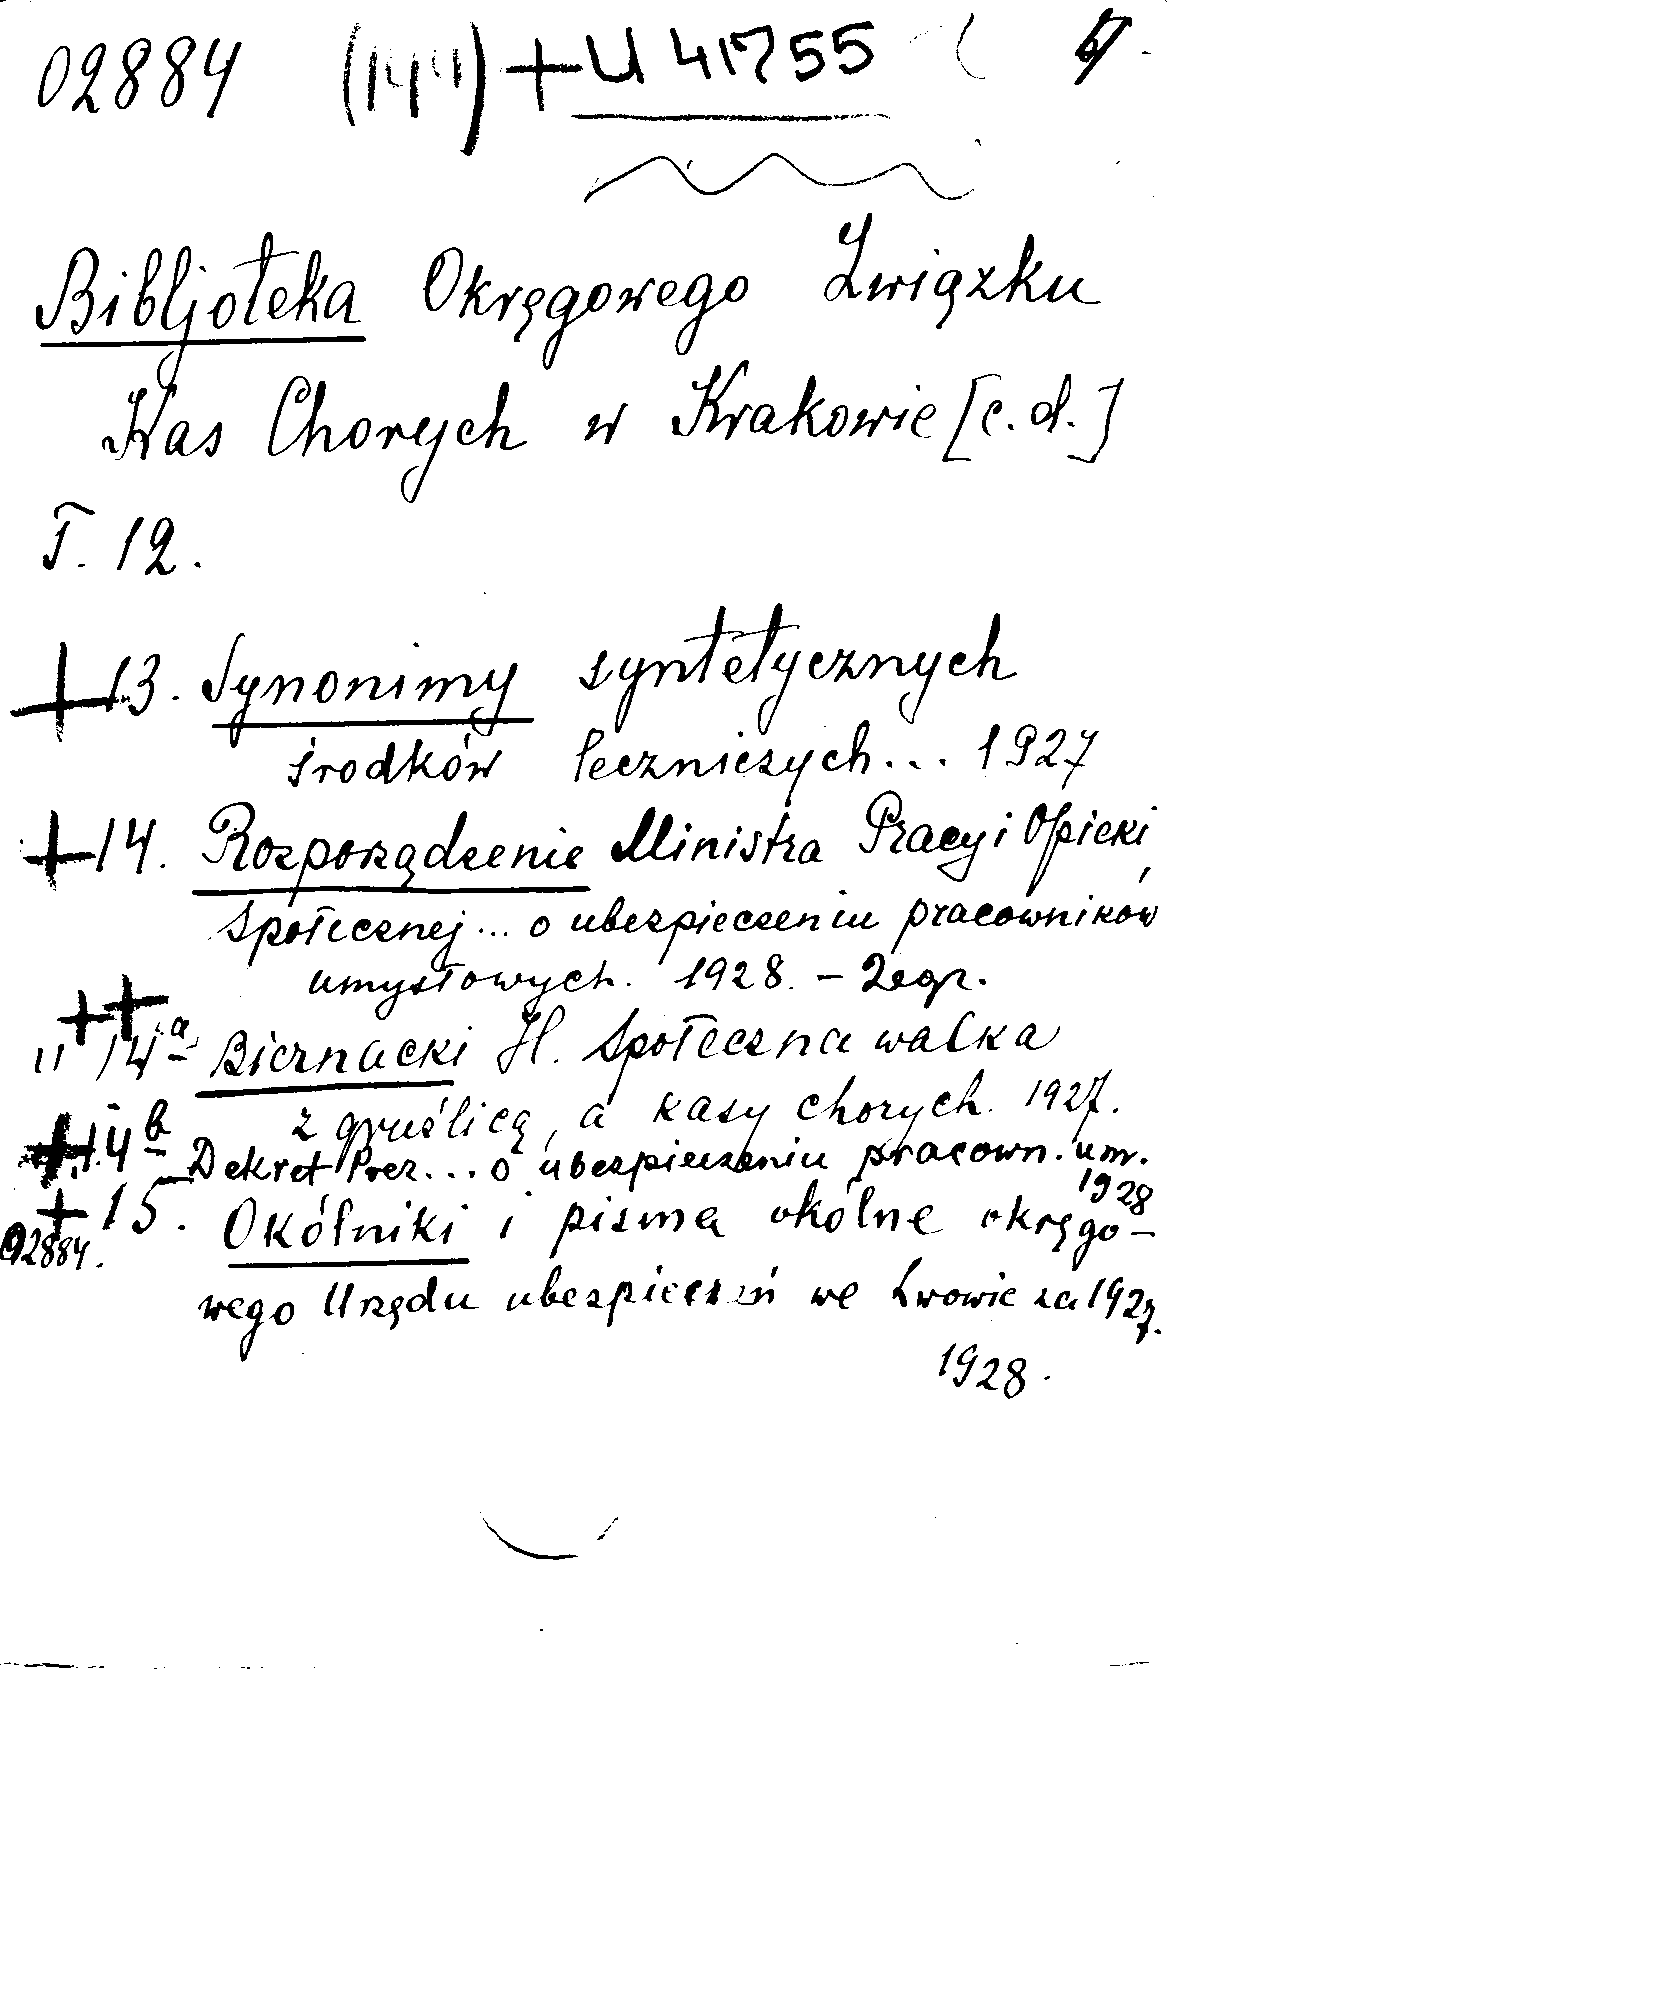 02884 (144) + U 41755
Bibljoteka Okręgowego Związku
Kas Chorych w Krakowie [c.d.]
T. 12.
+ 13. Synonimy syntetycznych
środków leczniczych... 1927
+ 14. Rozporządzenie Ministra Pracy i Opieki
Społecznej... o ubezpieczeniu pracowników
umysłowych. 1928. – 2 egz.
++
U 14a Biernacki M. Społeczna walka
z gruźlicą, a kasy chorych. 1927.
+ 14b Dekret Prez... o ubezpieczeniu pracown. um.
1928
+ 15. Okólniki i pisma okólne okręgo-
02884.
wego Urzędu ubezpieczeń we Lwowie za 1927.
1928.